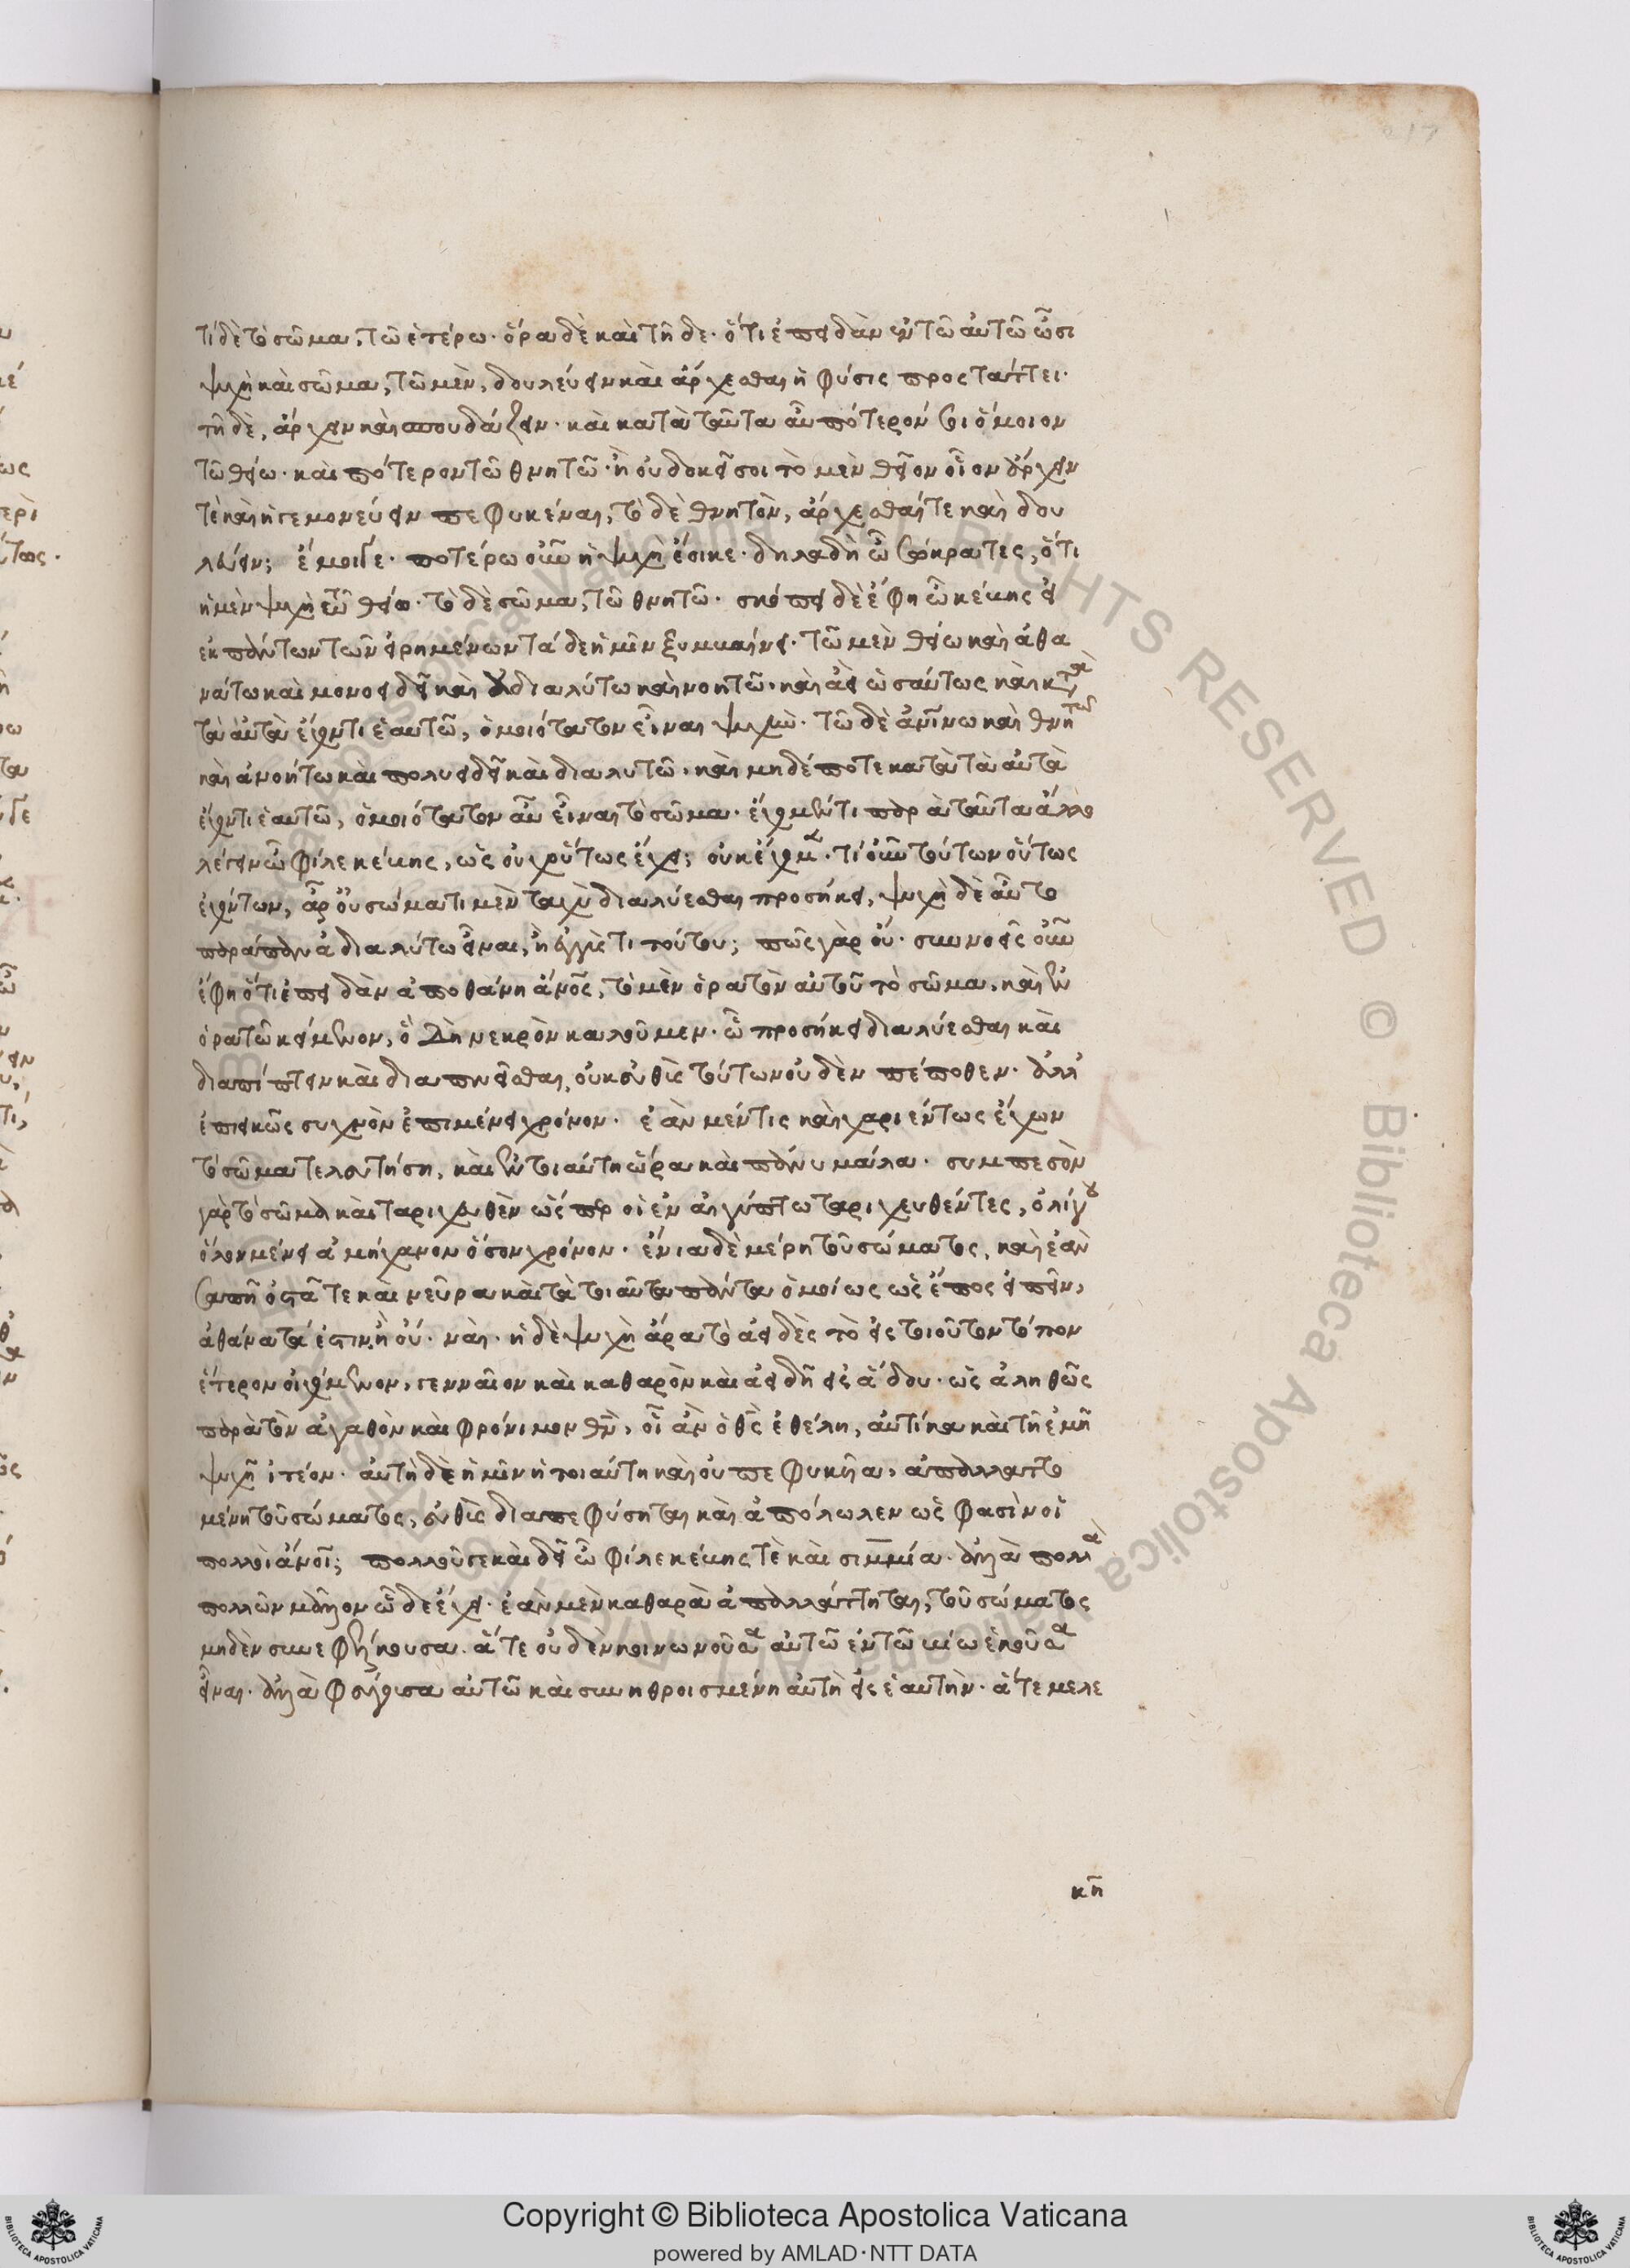 τί δὲ τὸ σῶμα, τῶ ἑτέρω· ὅρα δὲ καὶ τῆδε· ὅτι ἐπειδὰν ἐν τῶ αὐτῶ ὦσι
ψυχὴ καὶ σῶμα, τῶ μὲν, δουλεύειν καὶ ἄρχεσθαι ἡ φύσις προςτάττει·
τῆ δὲ, ἄρχειν καὶ σπουδάζειν· καὶ κατὰ ταῦτα αὖ πότερόν σοι ὅμοιον
τῶ θείω· καὶ πότερον τῶ θνητῶ· ἢ οὐ δοκεῖ σοι τὸ μὲν θεῖον οἷον ἄρχειν
τὲ καὶ ἡγεμονεύειν πεφυκέναι, τὸ δὲ θνητὸν, ἄρχεσθαί τε καὶ δου
λεύειν; ἔμοιγε· ποτέρω οὖν ἡ ψυχὴ ἔοικε· δηλαδὴ ὦ σώκρατες, ὅτι
ἡ μὲν ψυχὴ τῶ θείω· τὸ δὲ σῶμα, τῶ θνητῶ· σκόπει δὲ ἔφη ὦ κέβης εἰ
ἐκ πάντων τῶν εἰρημένων τάδε ἡμῖν ξυμβαίνει· τῶ μὲν θείω καὶ ἀθα
νάτω καὶ μονοειδεῖ καὶ ἀδιαλύτω καὶ νοητῶ· καὶ ἀεὶ ὡσαύτως καὶ κατὰ
τὰ αὐτὰ ἔχοντι ἑαυτῶ, ὁμοιότατον εἶναι ψυχὴ· τῶ δὲ ἀνθρωπίνω καὶ θνητῶ
καὶ ἀνοήτω καὶ πολυειδεῖ καὶ διαλυτῶ· καὶ μηδέποτε κατὰ τὰ αὐτὰ
ἔχοντι ἑαυτῶ, ὁμοιότατον αὖ εἶναι τὸ σῶμα· ἔχομέν τι παρὰ ταῦτα ἄλλο
λέγειν ὦ φίλε κέβης, ὡς οὐχ οὕτως ἔχει; οὐκ ἔχομεν· τί οὖν τούτων οὕτως
ἐχόντων, ἆρ οὐ σώματι μὲν ταχὺ διαλύεσθαι προσήκει, ψυχῆ δὲ αὖ το
παράπαν ἀδιαλύτω εἶναι, ἢ ἐγγύς τι τούτου; πῶς γὰρ οὔ· συννοεῖς οὖν
ἔφη ὅτι ἐπειδὰν ἀποθάνη ἄνος, τὸ μὲν ὁρατὸν αὐτοῦ τὸ σῶμα, καὶ ἐν
ὁρατῶ κείμενον, ὃ δὴ νεκρὸν καλοῦμεν· ὧ προσήκει διαλύεσθαι καὶ
διαπίπτειν καὶ διαπνεῖσθαι, οὐκ εὐθὺς τούτων οὐδὲν πέπονθεν· ἀλλ'
ἐπιεικῶς συχνὸν ἐπιμένει χρόνον· ἐὰν μέν τις καὶ χαριέντως ἔχων
τὸ σῶμα τελευτήση, καὶ ἐν τοιαύτη ὥρα καὶ πάνυ μάλα· συμπεσὸν
γὰρ τὸ σῶμα καὶ ταριχευθὲν ὥσπερ οἱ ἐν αἰγύπτω ταριχευθέντες, ὀλίγου
ὅλον μένει ἀμήχανον ὅσον χρόνον· ἔνια δὲ μέρη τοῦ σώματος, καὶ ἐὰν
σαπῆ ὀστᾶ τε καὶ νεῦρα καὶ τὰ τοιαῦτα πάντα ὁμοίως ὡς ἔπος εἰπεῖν,
ἀθάνατά ἐστιν ἢ οὔ· ναί· ἡ δὲ ψυχὴ ἄρα τὸ ἀειδὲς τὸ εἰς τοιοῦτον τόπον
ἕτερον οἰχόμενον, γενναῖον καὶ καθαρὸν καὶ ἀειδῆ εἰς ἅδου· ὡς ἀληθῶς
παρὰ τὸν ἀγαθὸν καὶ φρόνιμον θν, οἷ ἂν ὁ θς ἐθέλη, αὐτίκα καὶ τῆ ἐμῆ
ψυχῆ ἰτέον· αὐτὴ δὲ ἡμῖν ἡ τοιαύτη καὶ οὐ πεφυκυῖα, ἀπαλλαττο
μένη τοῦ σώματος, εὐθὺς διαπεφύσηται καὶ ἀπόλωλεν ὥς φασὶν οἱ
πολλοὶ ἄνοι; πολλοῦ γε καὶ δεῖ ὦ φίλε κέβης τὲ καὶ σιμμία· ἀλλὰ πολλὰ
πολλῶν μᾶλλον ὧδε ἔχει· ἐὰν μὲν καθαρὰ ἀπαλλάττηται, τοῦ σώματος
μηδὲν συνεφέλκουσα· ἅτε οὐδὲν κοινωνοῦσα αὐτῶ ἐν τῶ βίω ἑκοῦσα
εἶναι· ἀλλὰ φεύγουσα αὐτῶ καὶ συνηθροισμένη αὐτὴ εἰς ἑαυτὴν· ἅτε μελε
κη
ALL RIGHTS RESERVED © Biblioteca Apostolica Vaticana
Copyright © Biblioteca Apostolica Vaticana
powered by AMLAD·NTT DATA